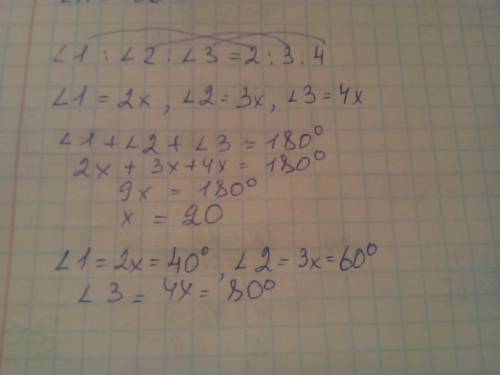 ∠1 : ∠2 : ∠3 = 2 : 3 : 4
∠1 = 2x, ∠2 = 3x, ∠3 = 4x
∠1 + ∠2 + ∠3 = 180°
2x + 3x + 4x = 180°
9x = 180°
x = 20
∠1 = 2x = 40°, ∠2 = 3x = 60°
∠3 = 4x = 80°